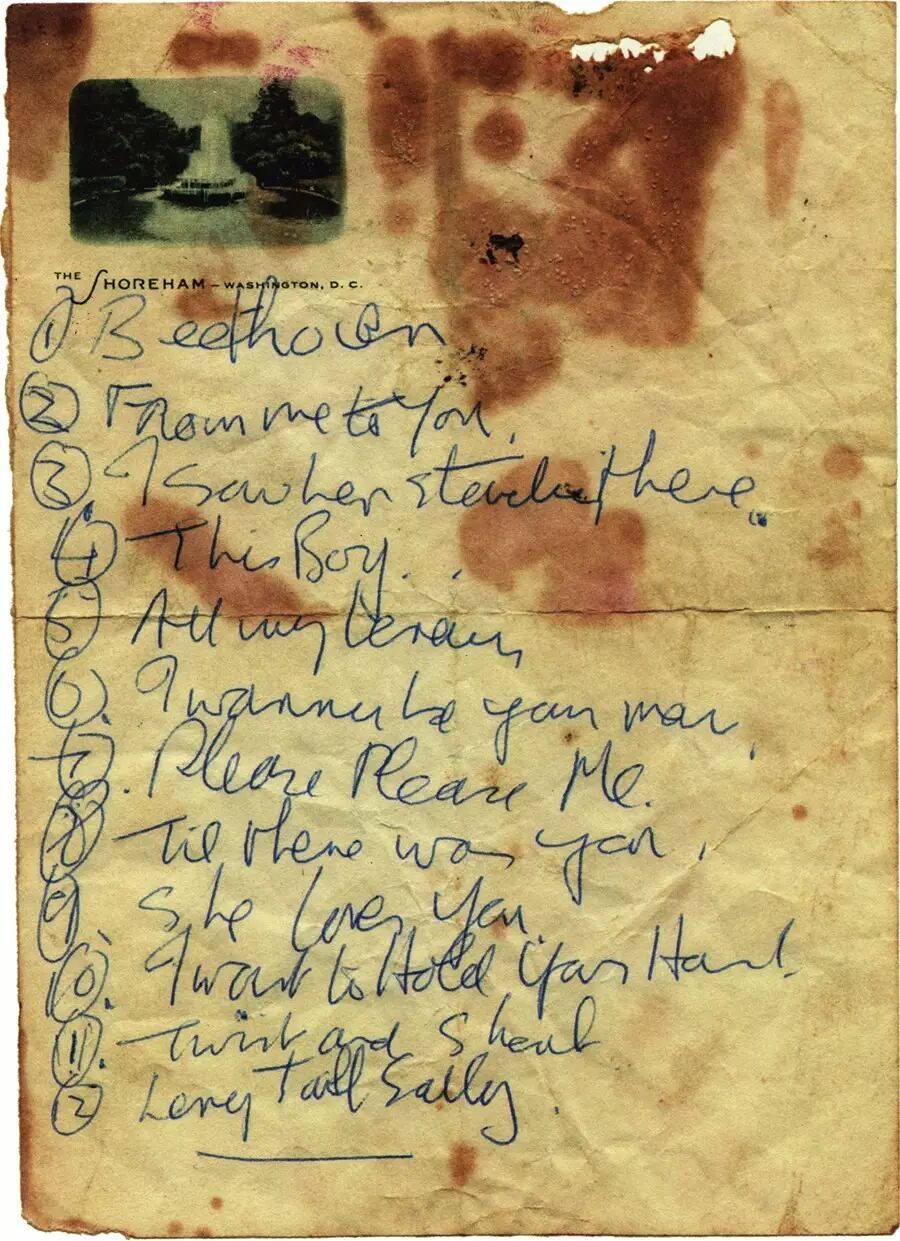 THE SHOREHAM – WASHINGTON, D. C.
① Beethoven
② From me to You.
③ I Saw her standing there..
④ This Boy..
⑤ All my Loving
⑥. I wanna be your man.
⑦. Please Please Me.
⑧ Till there was you.
⑨ She Loves You.
⑩. I want to Hold Your Hand.
⑪. Twist and Shout
⑫ Long Tall Sally.